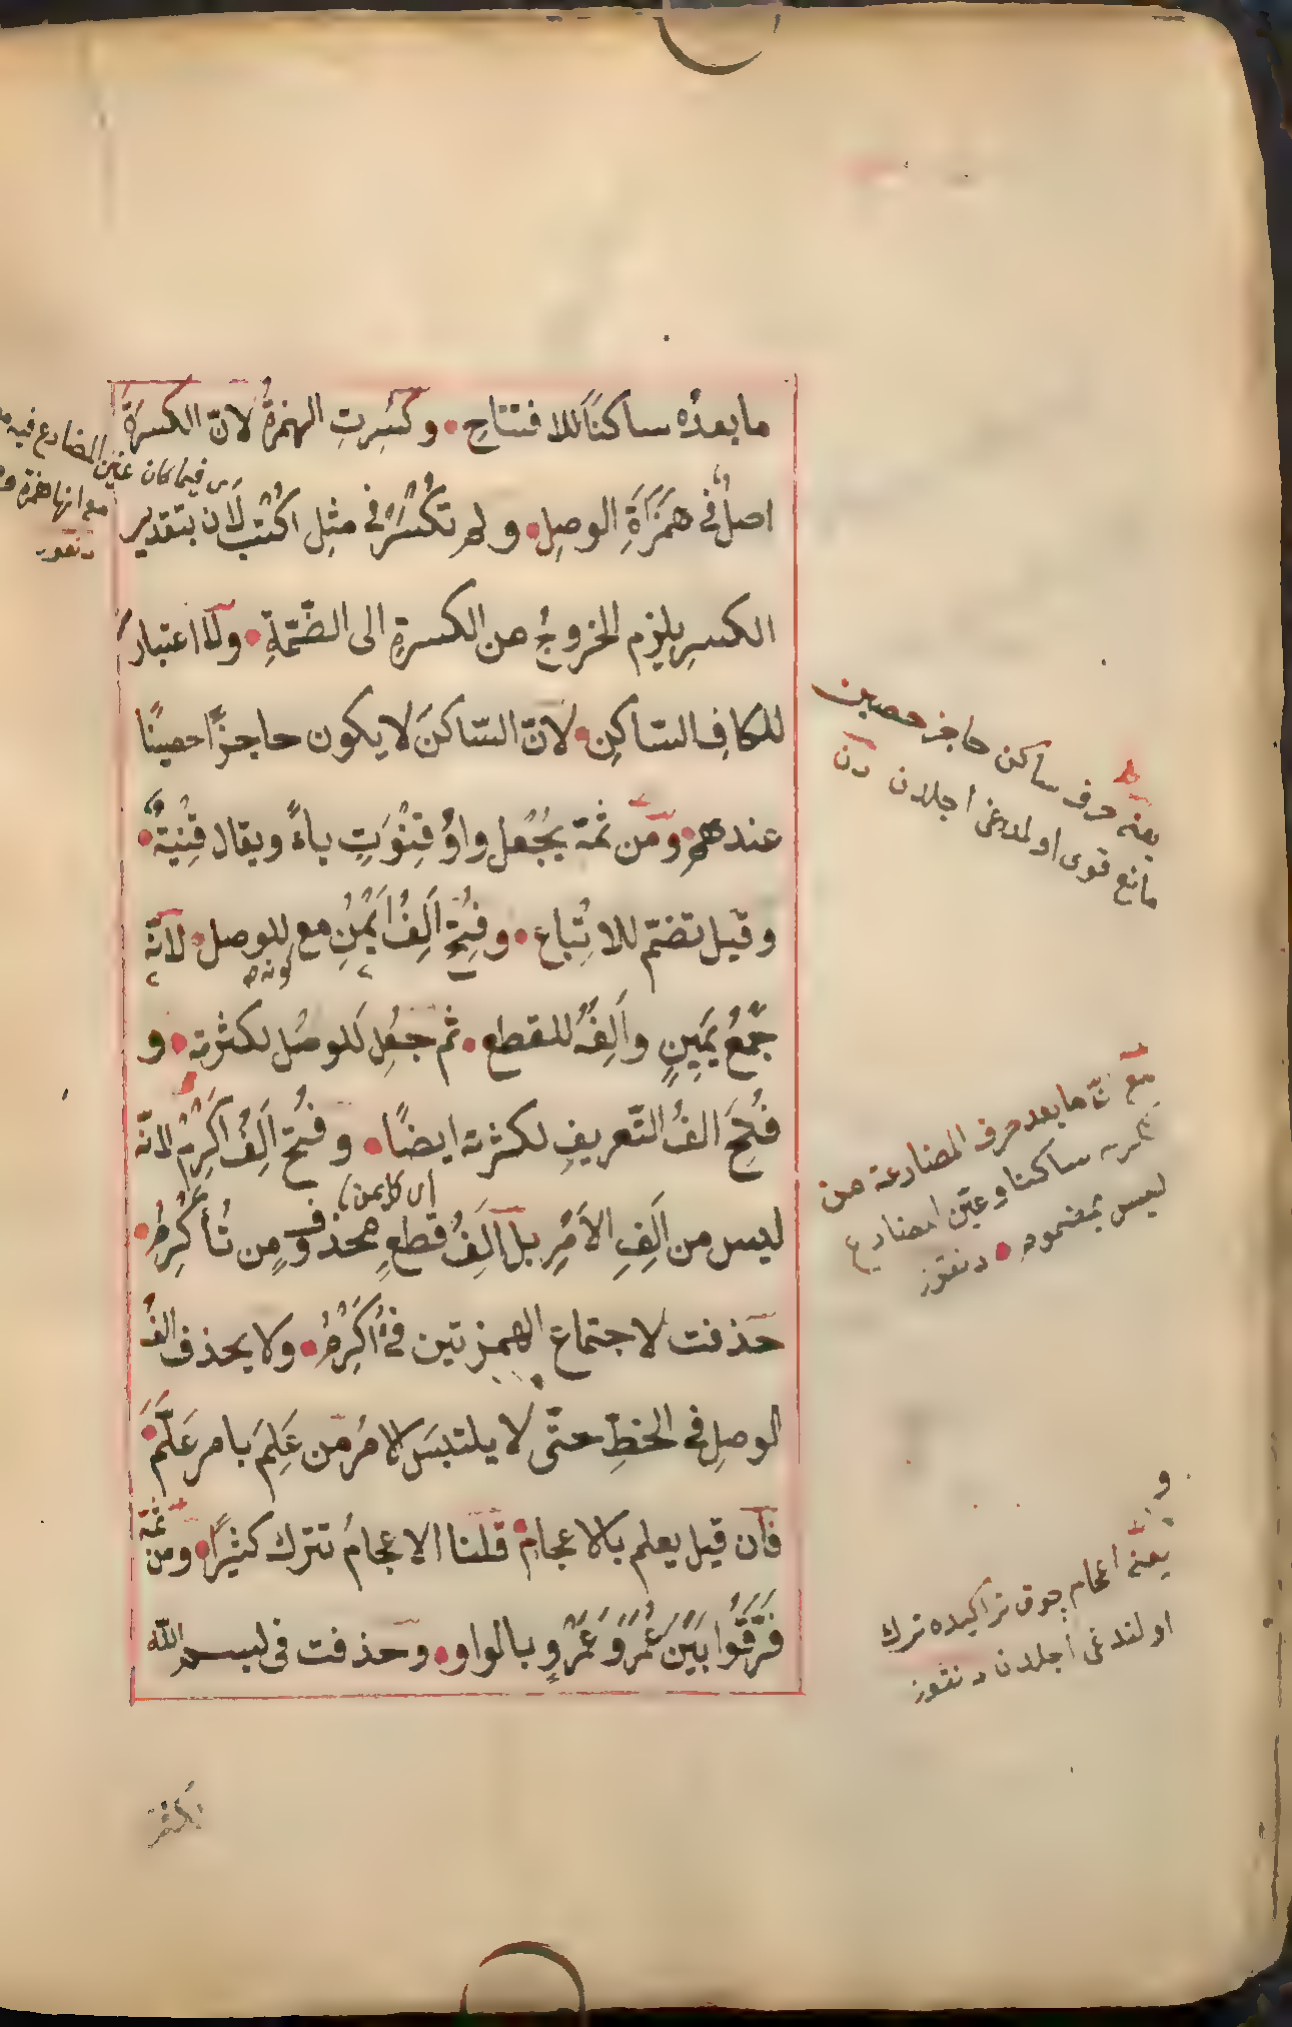 ما بعده ساكناً للافتتاحِ وكُسِرتِ الهمزةُ لانّ الكسرةَ
اصلٌ فى همَزَاةِ الوصلِ ولم تُكْسَرْ فى مثلِ اُكْتُبْ لان بتقدير
الكسرِ يلزم الخروجُ من الكسرةِ الى الضّمّةِ ولا اعتبارَ
للكافِ السّاكِنِ لانّ السّاكنَ لا يكون حاجزًا حصينًا
عندهم ومن ثمّة يُجْعل واوُ قِنْوَتٍ ياءً ويقال قِنْيَةٌ
وقيل تضمّ للاتباع وفُتِحَ اَلِفُ اَيْمُنٍ مع كونه للوصل لانّه
جَمْعُ يَمِينٍ واَلِفُهُ للقطع ثم جُعِل للوصْل لكثرته و
فُتِحَ الفُ التّعريفِ لكثرته ايضًا وفُتح اَلِفُ اَكْرِمْ لانّه
ليس من اَلِفِ الاَمْرِ بل اَلِفُ قطعٍ محذوفٍ من تُأَكْرِمُ
حذفت لاجتماع الهمزتين فى أُكْرِمُ ولا يحذف الفُ
الوصلِ فى الخطِّ حتّى لا يلتبسَ الامرُ من عَلِمَ بامر عَلَّمَ
فان قيل يعلم بالاعجام قلنا الاعجامُ تترك كثيرًا ومن ثمّة
فَرَّقُوا بَيْنَ عُمَرَ وعَمْرٍو بالواو وحذفت فى بسم الله
فيما كان عين المضارع فيه
مع انها همزة
دنقوز
يعنى حرف ساكن حاجز حصين
مانع قوى اولمدغى اجلدن دن
ما بعد حرف المضارعة من
ساكنا وعين المضارع
ليس بمضموم دنقوز
يعنى اعجام چوق تراكيده ترك
اولندغى اجلدن دنقوز